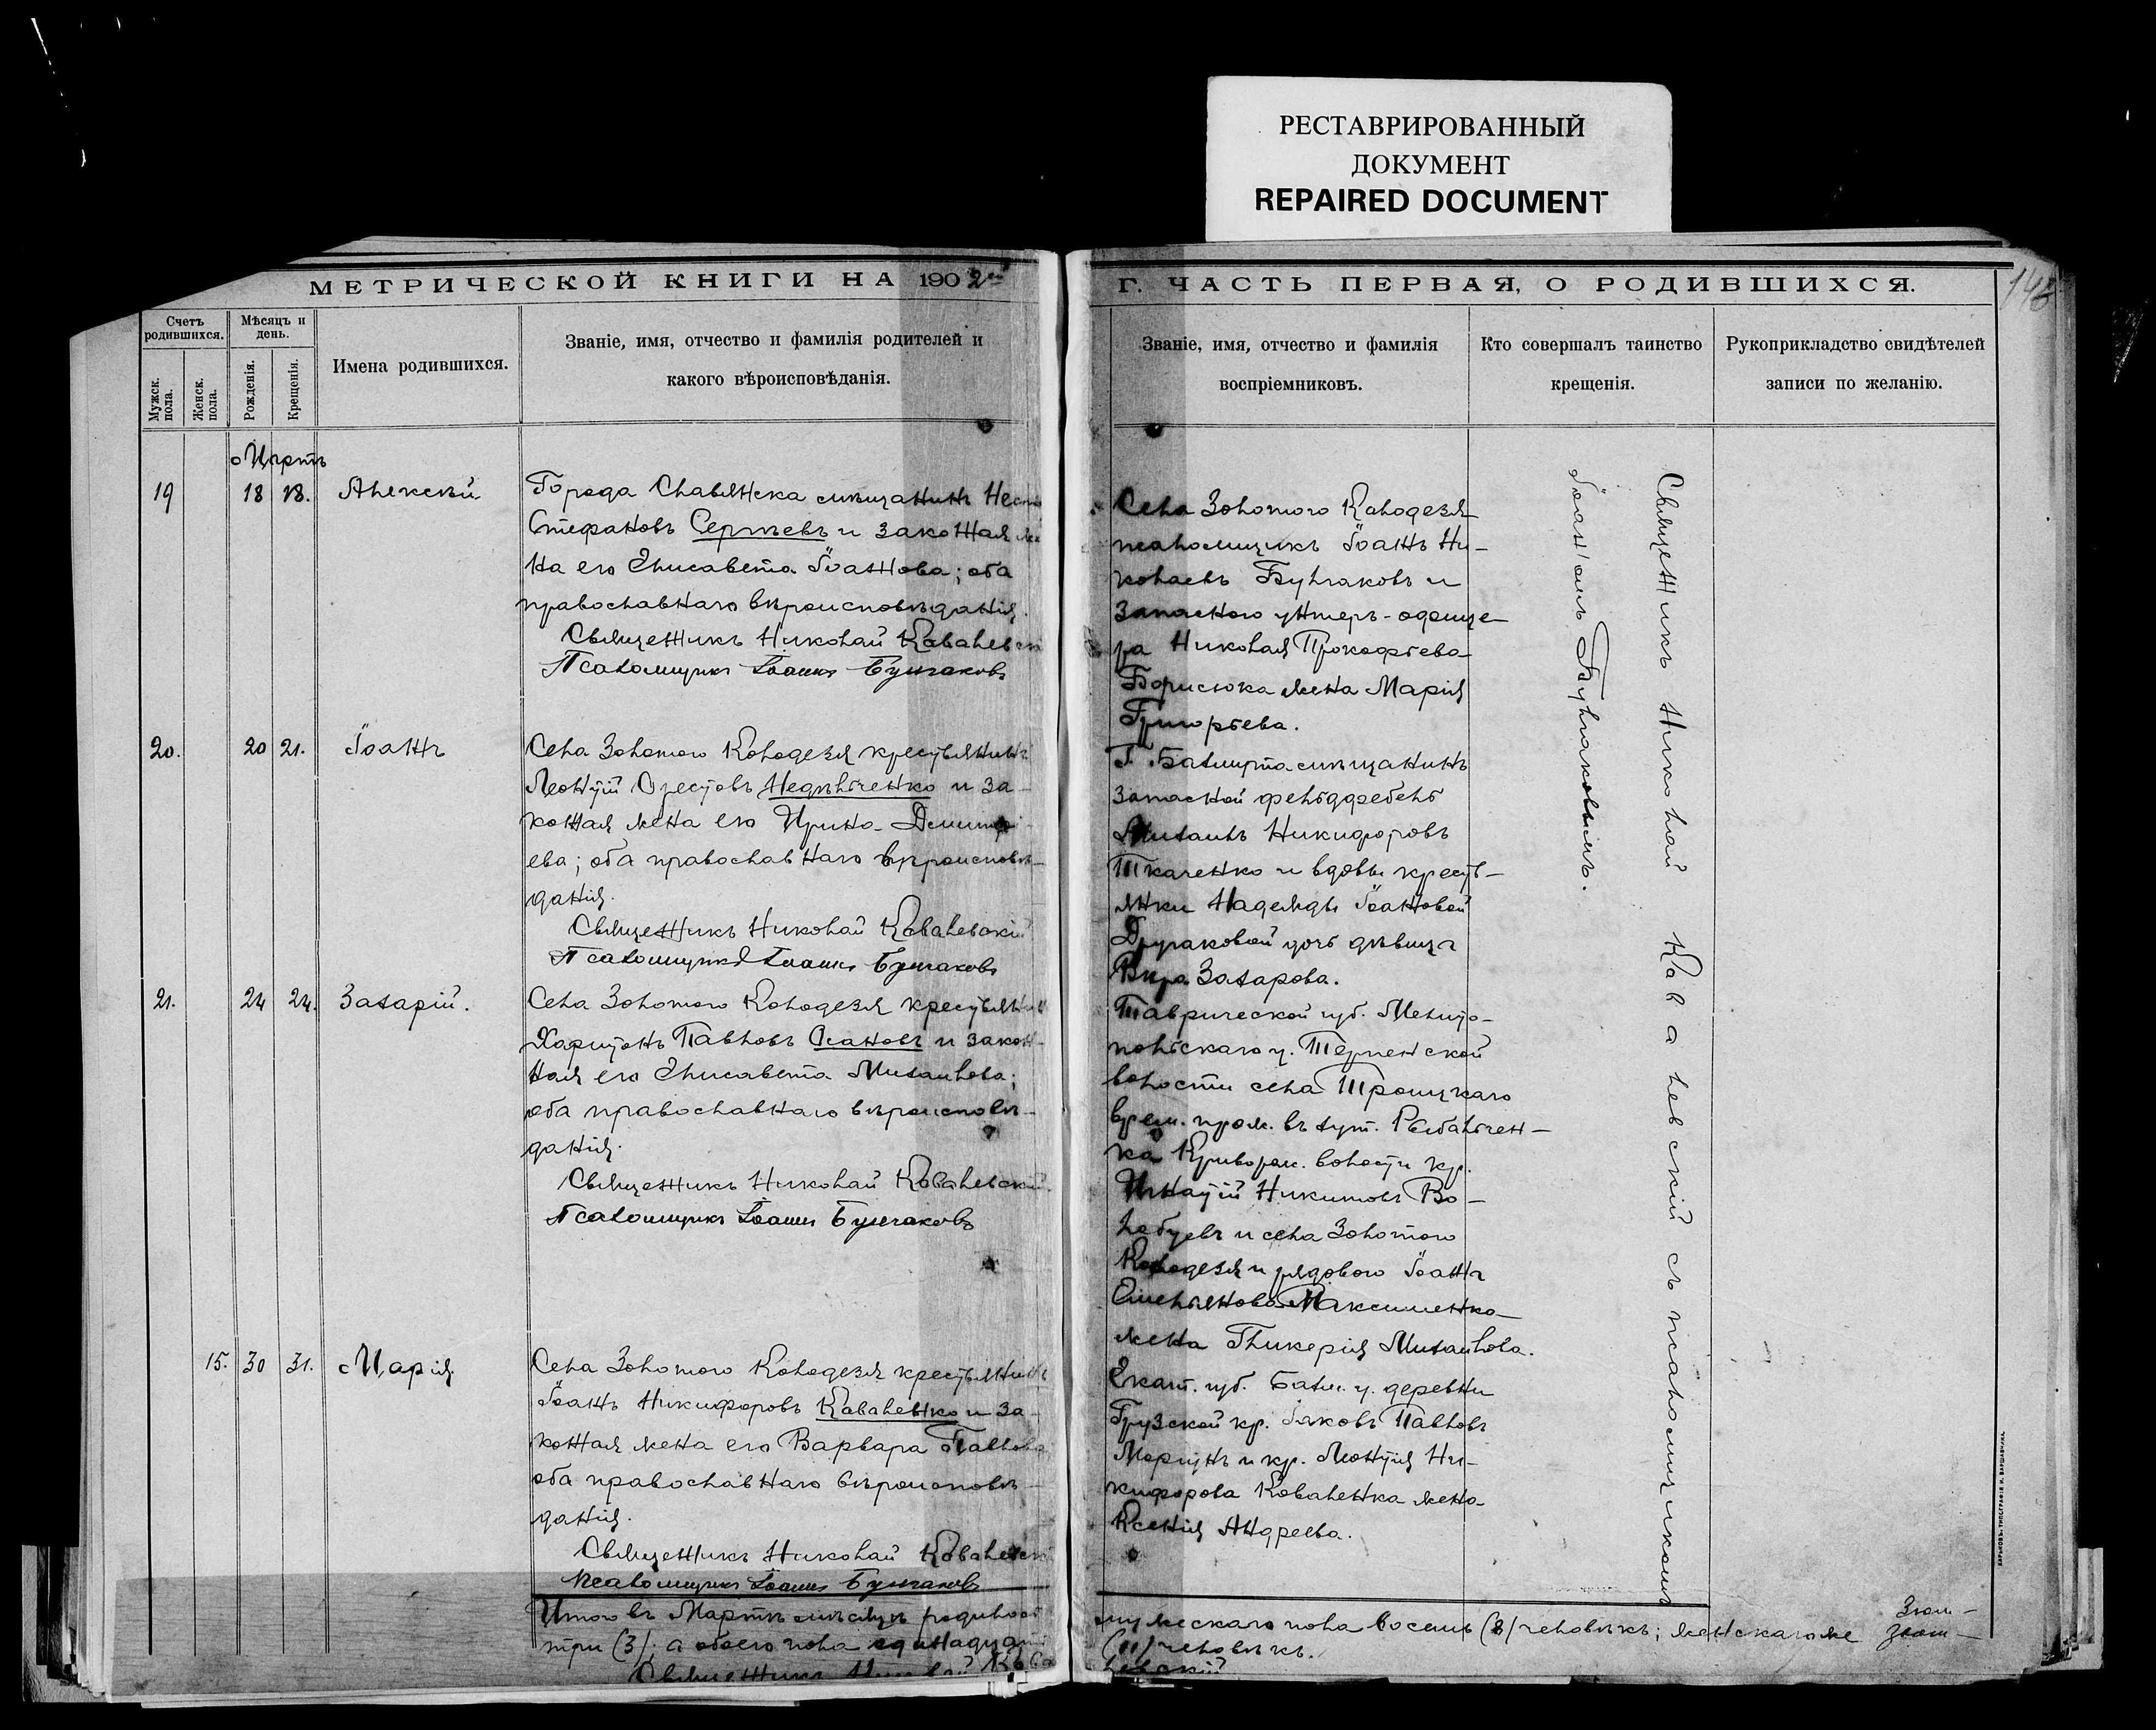 РЕСТАВРИРОВАННЫЙ
ДОКУМЕНТ
REPAIRED DOCUMENT
МЕТРИЧЕСКОЙ КНИГИ НА 1902
Г. ЧАСТЬ ПЕРВАЯ, О РОДИВШИХСЯ.
Счетъ родившихся.
Мѣсяцъ и день.
Мужск. пола.
Женск. пола.
Рожденія.
Крещенія.
Имена родившихся.
Званіе, имя, отчество и фамилія родителей и
какого вѣроисповѣданія.
Званіе, имя, отчество и фамилія
воспріемниковъ.
Кто совершалъ таинство
крещенія.
Рукоприкладство свидѣтелей
записи по желанію.
Мартъ
19 18 18. Алексѣй
Города Славянска мѣщанинъ
Стефановъ Сергѣевъ и законная
на его Елисавета Іоаннова; оба
православнаго вѣроисповѣданія.
Священникъ Николай Ковалевскій
Псаломщикъ Іоаннъ Булгаковъ
20. 20 21. Іоаннъ
Села Золотого Колодезя крестьянинъ
Леонтій Орестовъ Недѣльченко и за-
конная жена его Ирина Димитрі-
ева; оба православнаго вѣроисповѣ-
данія.
Священникъ Николай Ковалевскій
Псаломщикъ Іоаннъ Булгаковъ
21. 24 24. Захарій.
Села Золотого Колодезя крестьянинъ
Харитонъ Павловъ Осановъ и закон-
ная его Елисавета Михаилова;
оба православнаго вѣроисповѣ-
данія.
Священникъ Николай Ковалевскій
Псаломщикъ Іоаннъ Булгаковъ
15. 30 31. Марія
Села Золотого Колодезя крестьянинъ
Іоаннъ Никифоровъ Коваленко и за-
конная жена его Варвара Павлова
оба православнаго вѣроисповѣ-
данія.
Священникъ Николай Ковалевскій
Псаломщикъ Іоаннъ Булгаковъ
Итого въ Мартѣ мѣсяцѣ родилось
три (3); а обоего пола единадцать
Священникъ Николай Кова
Села Золотого Колодезя
псаломщикъ Іоаннъ Ни-
колаевъ Булгаковъ и
запасного унтеръ-офице-
ра Николая Прокофьева
Борисюка жена Марія
Григорьева.
Г. Бахмута мѣщанинъ
запасной фельдфебель
Михаилъ Никифоровъ
Ткаченко и вдовы кресть-
янки Надежды Іоанновой
Другаковой дочь дѣвица
Вѣра Захарова.
Таврической губ. Мелито-
польскаго у. Терпенской
волости села Троицкаго
врем. прож. въ хут. Рыбальчен-
ка Криворож. волости кр.
Игнатій Никитовъ Во-
лебуевъ и села Золотого
Колодезя и рядового Іоанна
Емельянова Максименко
жена Гликерія Михаилова.
Екат. губ. Бахм. у. деревни
Грузской кр. Іаковъ Павловъ
и кр. Леонтія Ни-
кифорова Коваленка жена
Ксенія Андреева.
мужескаго пола восемь (8) человѣкъ; женскаго же
(11) человѣкъ.
левскій
Священникъ Николай Ковалевскій съ псаломщикомъ
Іоанномъ Булгаковымъ.